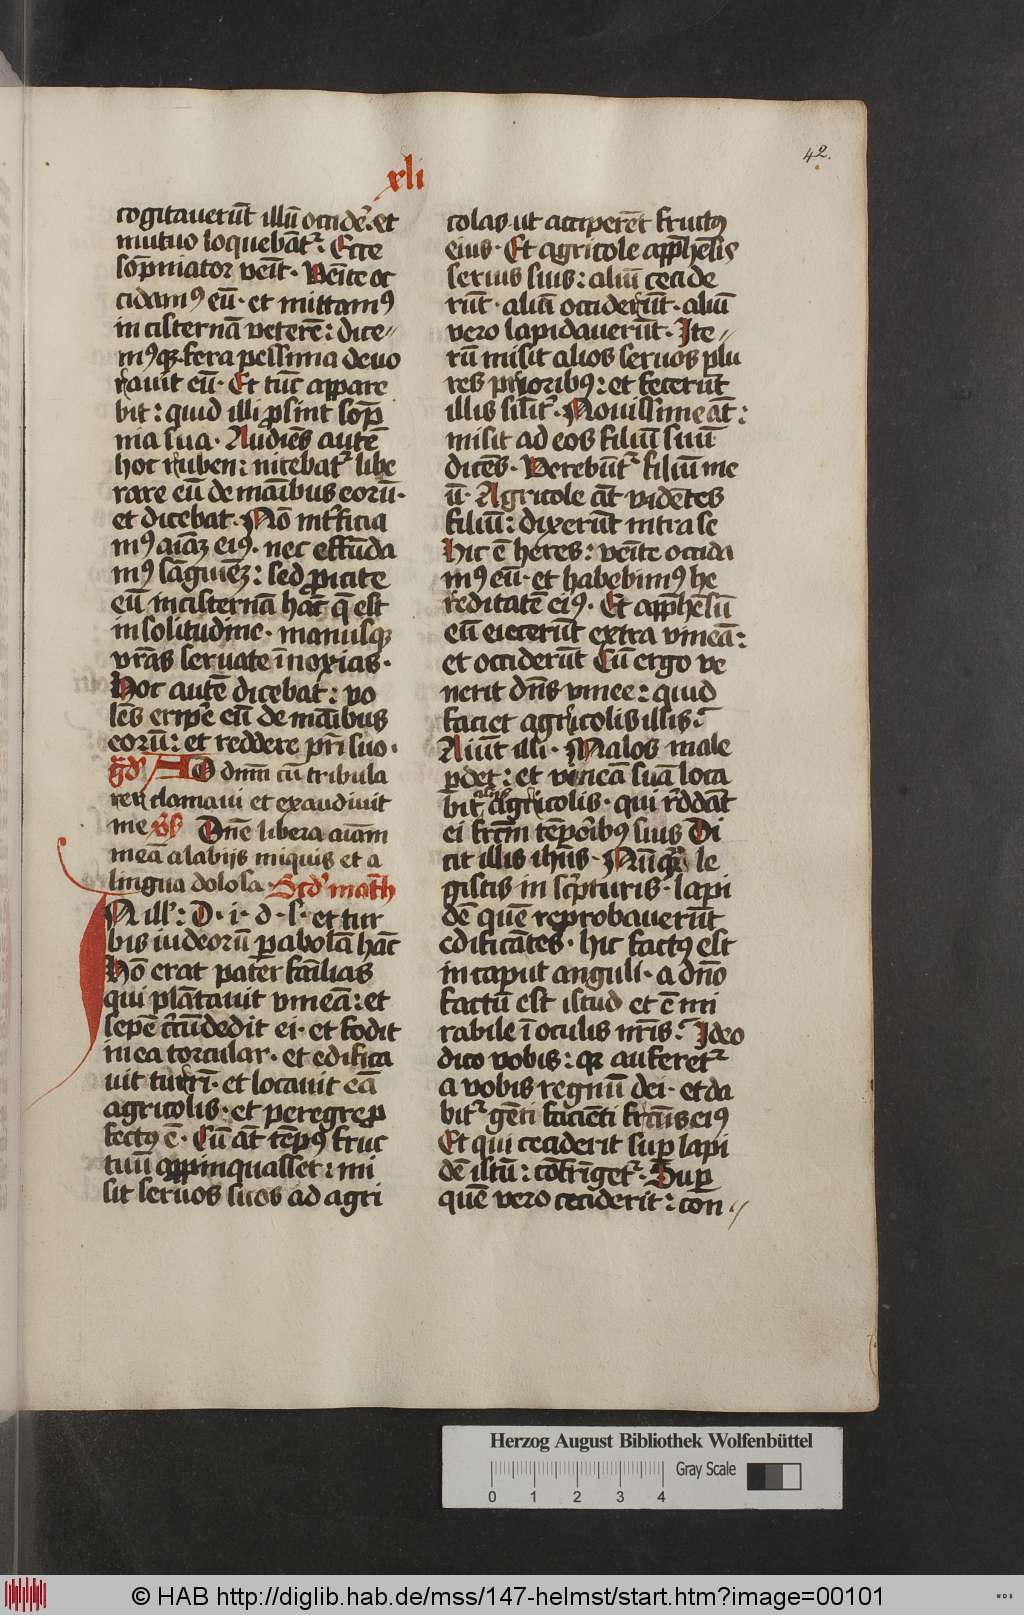 42.
xli
cogitaverūt illū occidēr. et
mutuo loquebāt᷑: Ecce
sōpniator venit· Uenīte oc
cidamꝰ eū· et mittamꝰ
in cisternā veterē: dice〃
mꝰqꝫ fera pessima devo
ravit eū· Et tūc appare
bit: quid illi ꝓsint sōp̄
nia sua· Audiēs autē
hoc ruben: nitebat᷑ libe
rare eū de māibus eorū·
et dicebat· Nō int̄ficia
mꝰ aīaꝫ eiꝰ· nec effūda
mꝰ sāguineꝫ: sed ꝓicite
eū in cisternā hāc q̄ est
in solitudine· manusqꝫ
vr̄as servate īnoxias·
Hoc autē dicebat: vo
lēs erip̄e eū de māibus
eorū: et reddere pr̄i suo·
gͣdͬ AD dnm̄ cū tribula
rer clamaui et exaudiuit
me v̄s Dn̄e libera aīam
meā a labijs iniquis et a
lingua dolosa· Scdͫ math̄
N ill᷑: D· i· d· s· et tur
bis iudeorū ꝑabolā hāc
Hō erat pater fāilias
qui plātavit vineā: et
sepē cͬcūdedit ei· et fodit
in ea torcular· et edifica
vit turrī· et locavit eā
agricolis: et peregre ꝓ
fectꝰ ē· Cū āt tēpꝰ fruc
tuū appinquasset: mi
sit servos suos ad agri
colas ut acciperēt fructꝰ
eius· Et agricole app̄hēsis
servis suis: aliū cecide
rūt· aliū occiderūt· aliū
vero lapidaverūt· Ite〃
rū misit alios servos plu
res prioribꝰ: et fecerūt
illis silīt᷑· Novissime āt:
misit ad eos filiū suū
dicēs· Verebūt᷑ filiū me
ū· Agricole āt vidētes
filiū: dixerūt intra se
Hic ē heres: venīte occida
mꝰ eū· et habebimꝰ he
reditatē eiꝰ· Et app̄hēsū
eū eiecerūt extra vineā:
et occiderūt Cū ergo ve
nerit dn̄s vinee: quid
faciet agricolis illis?
Aiūt illi· Malos male
ꝑdet: et vineā suā loca
bit alijs agricolis· qui rͤddāt
ei frc̄m tēpoībꝰ suis Di
cit illis ih̄us· Nūqͣ le
gistis in sc͛pturis· lapi
dē quē reprobaverūt
edificātes· hic factꝰ est
in caput anguli· a dn̄o
factū est istud et ē mi
rabile ī oculis nr̄is? Ideo
dico vobis: qꝛ auferet᷑
a vobis regnū dei· et da
bit᷑ gēti faciēti frc̄us eiꝰ
Et qui ceciderit suꝑ lapi
dē istū: cōfrīget᷑· Suꝑ
quē vero ceciderit: con〃
Herzog August Bibliothek Wolfenbüttel
Gray Scale
0 1 2 3 4
© HAB http://diglib.hab.de/mss/147-helmst/start.htm?image=00101